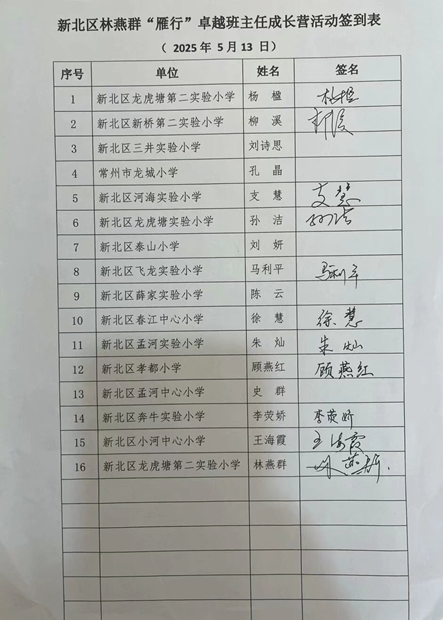 新北区林燕群“雁行”卓越班主任成长营活动签到表
（ 2025 年 5 月 13 日）
序号 单位 姓名 签名
1 新北区龙虎塘第二实验小学 杨 楹 杨楹
2 新北区新桥第二实验小学 柳 溪
3 新北区三井实验小学 刘诗思
4 常州市龙城小学 孔 晶
5 新北区河海实验小学 支 慧 支慧
6 新北区龙虎塘实验小学 孙 洁 孙洁
7 新北区泰山小学 刘 妍
8 新北区飞龙实验小学 马利平 马利平
9 新北区薛家实验小学 陈 云
10 新北区春江中心小学 徐 慧 徐慧
11 新北区孟河实验小学 朱 灿 朱灿
12 新北区孝都小学 顾燕红 顾燕红
13 新北区孟河中心小学 史 群
14 新北区奔牛实验小学 李荧娇 李荧娇
15 新北区小河中心小学 王海霞 王海霞
16 新北区龙虎塘第二实验小学 林燕群 林燕群